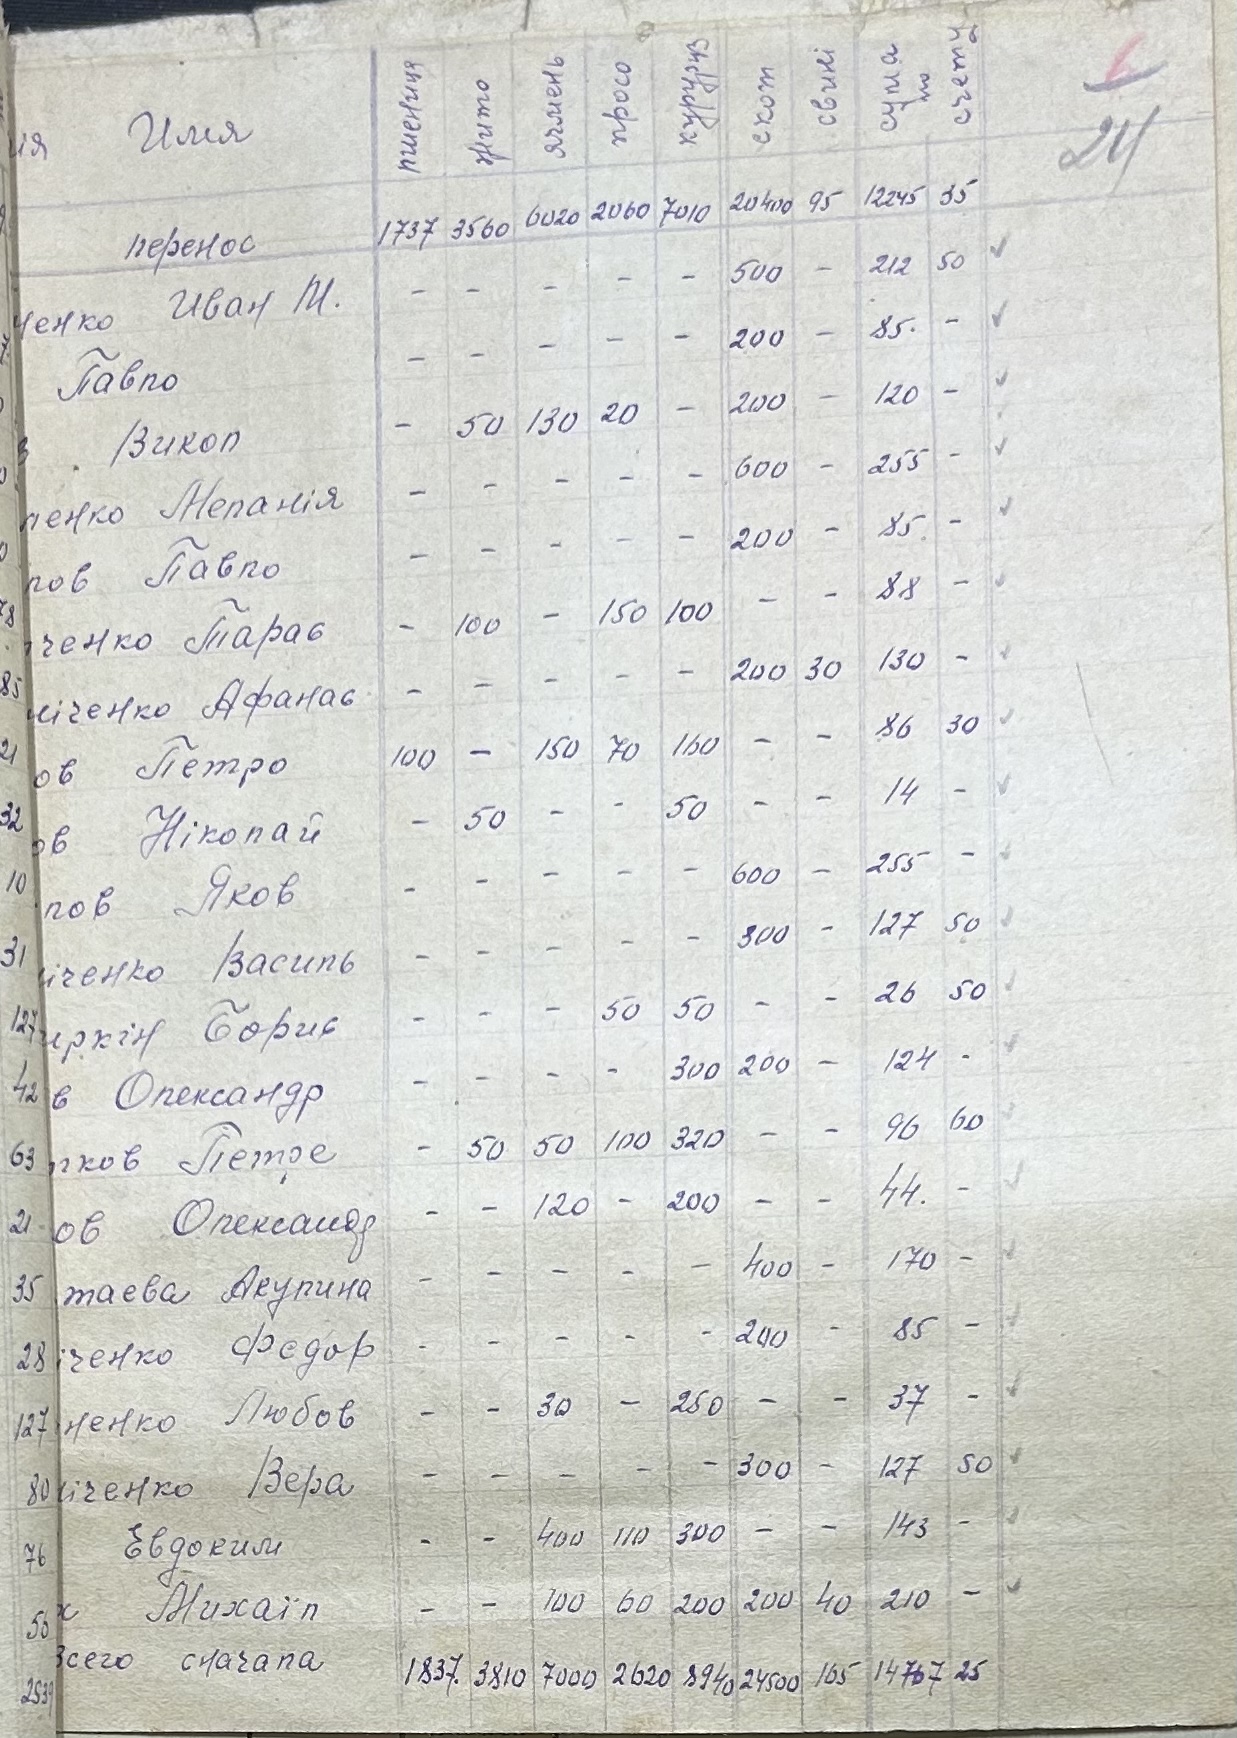 6
24
ія Имя пшениця жито ячмень просо куруруз скот свині сума по счету
перенос 1737 3560 6020 2060 7010 20400 95 12245 35
ченко Иван М. - - - - - 500 - 212 50
Павло - - - - - 200 - 85. -
Викол - 50 130 20 - 200 - 120 -
ленко Мелания - - - - - 600 - 255 -
пов Павло - - - - - 200 - 85. -
ченко Тарас - 100 - 150 100 - - 88 -
ліченко Афанас - - - - - 200 30 130 -
ов Петро 100 - 150 70 160 - - 86 30
ов Ніколай - 50 - - 50 - - 14 -
пов Яков - - - - - 600 - 255 -
іченко Василь - - - - - 300 - 127 50
иркін Борис - - - 50 50 - - 26 50
в Олександр - - - - 300 200 - 124 -
лков Петро - 50 50 100 320 - - 96 60
ов Олександр - - 120 - 200 - - 44. -
таева Акулина - - - - - 400 - 170 -
іченко Федор - - - - - 200 - 85 -
ненко Любов - - 30 - 250 - - 37 -
іченко Вера - - - - - 300 - 127 50
Евдоким - - 400 110 300 - - 143 -
х Михаїл - - 100 60 200 200 40 210 -
Всего сначала 1837. 3810 7000 2620 8940 24500 165 14767 25
78
85
21
32
10
31
127
42
63
21
35
28
127
80
76
56